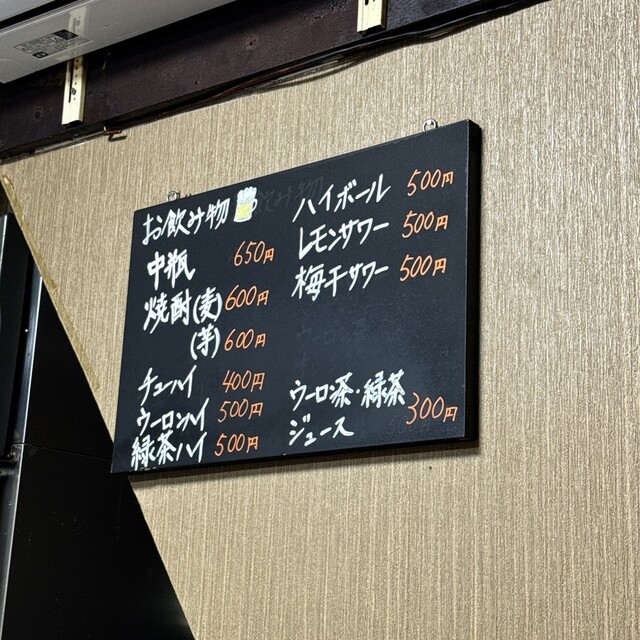 お飲み物
中瓶 650円
焼酎(麦) 600円
(芋) 600円
チューハイ 400円
ウーロンハイ 500円
緑茶ハイ 500円
ハイボール 500円
レモンサワー 500円
梅干サワー 500円
ウーロン茶・緑茶
ジュース 300円